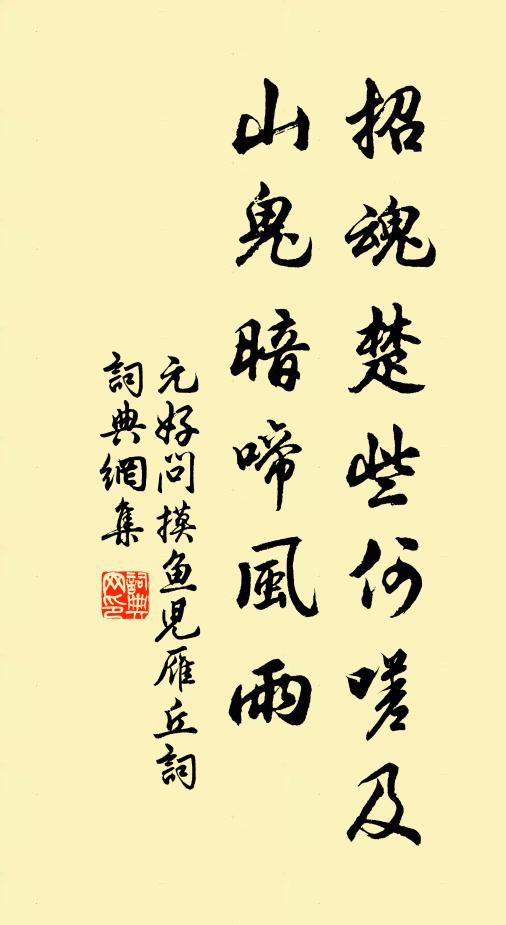 招魂楚些何嗟及
山鬼暗啼風雨
元好問摸鱼兒雁丘詞
詞典網集
詞典网印